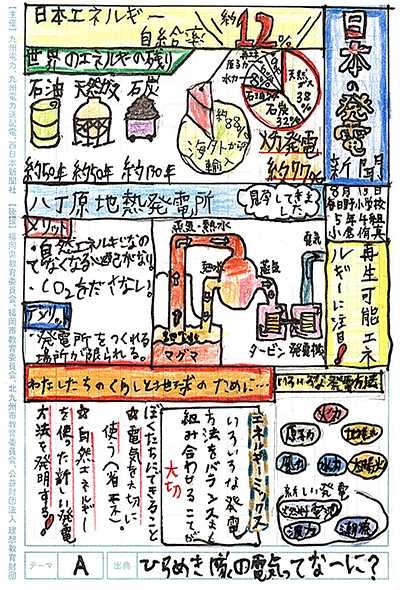 日本の発電
新聞
8月13日
春日野小学校
5年4組
再生可能エネ
ルギーに注目!
日本エネルギー
自給率
約12%
世界のエネルギーの残り
石油
天然ガス
石炭
約50年
約50年
約130年
約88%
海外から
輸入
天然ガス
38%
石炭
32%
水力
火力発電
約77%
八丁原地熱発電所
見学してきました
メリット
・自然エネルギーなの
・CO2をださない。
・発電所をつくれる
場所が限られる。
蒸気・熱水
熱水
蒸気
電気
マグマ
タービン
発電機
わたしたちのくらしと地球のために…
いろいろな発電方法
火力
原子力
地熱
風力
水力
太陽光
新しい発電
燃料電池
波力
潮流
エネルギーミックス
いろいろな発電
方法をバランスよく
組み合わせることが
大切
ぼくたちにできること
☆電気を大切に
使う(省エネ)。
☆自然エネルギー
を使った新しい発電
方法を発明する!
テーマ
A
出典
ひらめき!家の電気ってなーに?
【主催】九州電力、九州電力送配電、西日本新聞社 【後援】福岡県教育委員会、福岡市教育委員会、北九州市教育委員会、公益財団法人 理想教育財団